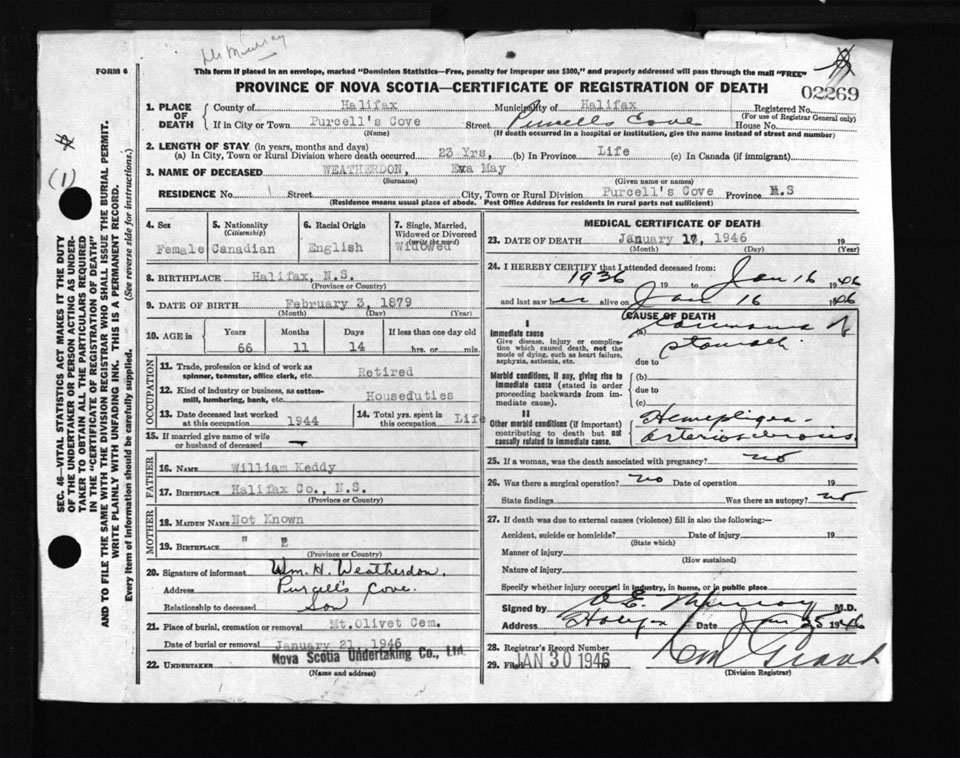 Dr Murray
FORM 6
This form if placed in an envelope, marked "Dominion Statistics—Free, penalty for improper use $300," and properly addressed will pass through the mail "FREE"
PROVINCE OF NOVA SCOTIA—CERTIFICATE OF REGISTRATION OF DEATH
02269
1. PLACE OF DEATH County of Halifax Municipality of Halifax Registered No.
(For use of Registrar General only)
If in City or Town Purcell's Cove Street Purcells Cove House No.
(Name) (If death occurred in a hospital or institution, give the name instead of street and number)
2. LENGTH OF STAY (in years, months and days)
(a) In City, Town or Rural Division where death occurred 23 Yrs, (b) In Province Life (c) In Canada (if immigrant)
3. NAME OF DECEASED WEATHERDON, May
(Surname) (Given name or names)
RESIDENCE No. Street City, Town or Rural Division Purcell's Cove Province N.S
(Residence means usual place of abode. Post Office Address for residents in rural parts not sufficient)
4. Sex 5. Nationality (Citizenship) 6. Racial Origin 7. Single, Married, Widowed or Divorced (write the word)
Female Canadian English Widowed
8. BIRTHPLACE Halifax, N.S.
(Province or Country)
9. DATE OF BIRTH February 3, 1879
(Month) (Day) (Year)
10. AGE in Years Months Days If less than one day old
66 11 14 hrs. or min.
OCCUPATION
11. Trade, profession or kind of work as spinner, teamster, office clerk, etc. Retired
12. Kind of industry or business, as cotton-mill, lumbering, bank, etc. Houseduties
13. Date deceased last worked at this occupation 1944 14. Total yrs. spent in this occupation Life
15. If married give name of wife or husband of deceased
FATHER
16. NAME William Keddy
17. BIRTHPLACE Halifax Co., N.S.
(Province or Country)
MOTHER
18. MAIDEN NAME Not Known
19. BIRTHPLACE "
(Province or Country)
20. Signature of informant Wm. H. Weatherdon.
Address Purcell's Cove.
Relationship to deceased Son
21. Place of burial, cremation or removal Mt.Olivet Cem.
Date of burial or removal January 21, 1946
22. UNDERTAKER Nova Scotia Undertaking Co., Ltd.
(Name and address)
MEDICAL CERTIFICATE OF DEATH
23. DATE OF DEATH January 17, 1946 19
(Month) (Day) (Year)
24. I HEREBY CERTIFY that I attended deceased from:
1936 19 to Jan 16 1946
and last saw her alive on Jan 16 1946
CAUSE OF DEATH
I
Immediate cause
Give disease, injury or complication which caused death, not the mode of dying, such as heart failure, asphyxia, asthenia, etc.
(a) Carcinoma of
stomach
due to
Morbid conditions, if any, giving rise to immediate cause (stated in order proceeding backwards from immediate cause).
(b)
due to
(c)
II
Other morbid conditions (if important) contributing to death but not causally related to immediate cause.
Hemiplegia
arteriosclerosis
25. If a woman, was the death associated with pregnancy? no
26. Was there a surgical operation? no Date of operation 19
State findings Was there an autopsy? no
27. If death was due to external causes (violence) fill in also the following:—
Accident, suicide or homicide? Date of injury 19
(State which)
Manner of injury
(How sustained)
Nature of injury
Specify whether injury occurred in industry, in home, or in public place
Signed by Murray M.D.
Address Halifax Date Jan 25 1946
28. Registrar's Record Number
29. Filed JAN 30 1946
(Division Registrar)
(1)
SEC. 46—VITAL STATISTICS ACT MAKES IT THE DUTY
OF THE UNDERTAKER OR PERSON ACTING AS UNDER-
TAKER TO OBTAIN ALL THE PARTICULARS REQUIRED
IN THE "CERTIFICATE OF REGISTRATION OF DEATH"
AND TO FILE THE SAME WITH THE DIVISION REGISTRAR WHO SHALL ISSUE THE BURIAL PERMIT.
WRITE PLAINLY WITH UNFADING INK. THIS IS A PERMANENT RECORD.
Every item of information should be carefully supplied. (See reverse side for instructions.)